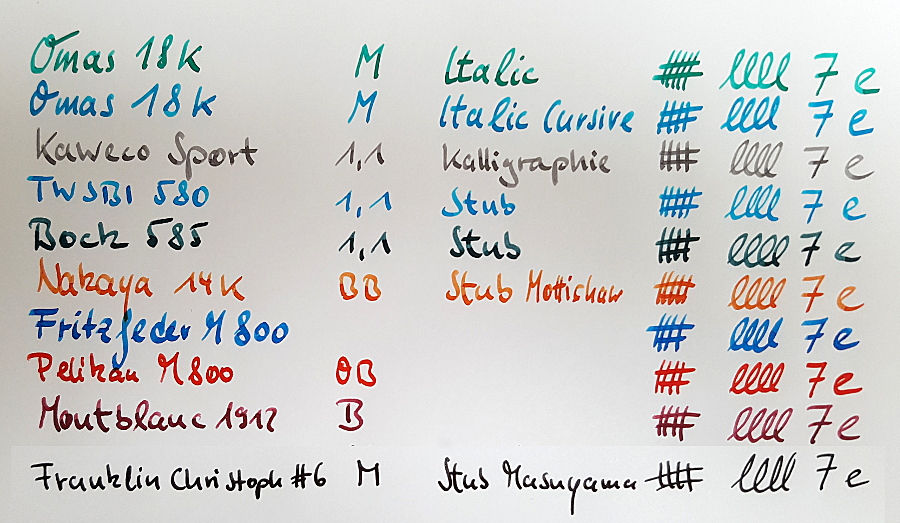 Omas 18K M Italic llll 7 e
Omas 18K M Italic Cursive llll 7 e
Kaweco Sport 1,1 Kalligraphie llll 7 e
TWSBI 580 1,1 Stub llll 7 e
Bock 585 1,1 Stub llll 7 e
Nakaya 14K BB Stub Mottishaw llll 7 e
Fritzfeder M800 llll 7 e
Pelikan M800 OB llll 7 e
Montblanc 1912 B llll 7 e
Franklin Christoph #6 M Stub Masuyama llll 7 e